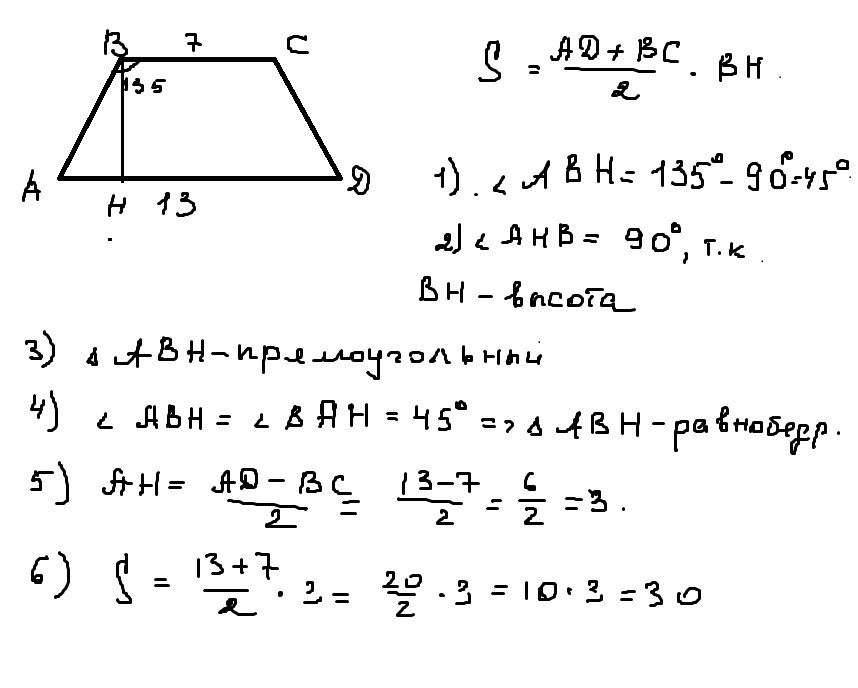 B 7 C
135
A H 13 D
S = (AD + BC)/2 · BH.
1). < ABH = 135° - 90° = 45°
2) < AHB = 90°, т.к.
BH - высота
3) Δ ABH - прямоугольный
4) < ABH = < BAH = 45° => Δ ABH - равнобедр.
5) AH = (AD - BC)/2 = (13-7)/2 = 6/2 = 3.
6) S = (13+7)/2 · 3 = 20/2 · 3 = 10 · 3 = 30